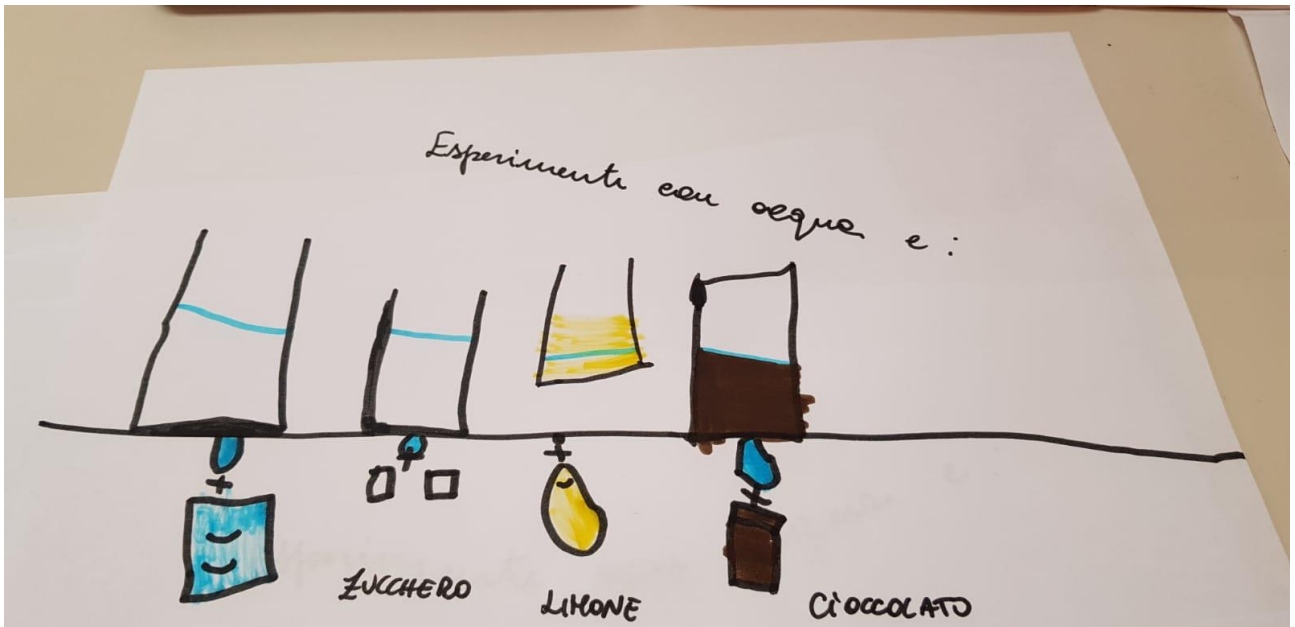 Esperimenti con acqua e :
ZUCCHERO
LIMONE
CIOCCOLATO